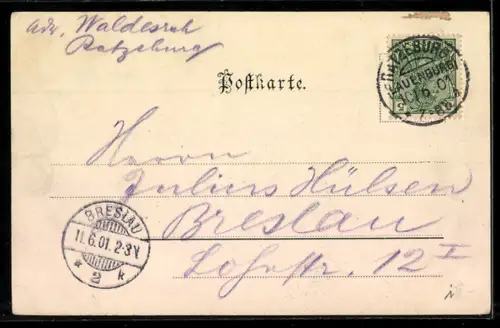 adr. Waldesruh
Ratzeburg
Postkarte.
RATZEBURG
(LAUENBURG)
5
Herrn
Julius Hülsen
Breslau
Lohestr. 12 I
BRESLAU
11.6.01. 2-3N
* 2 k